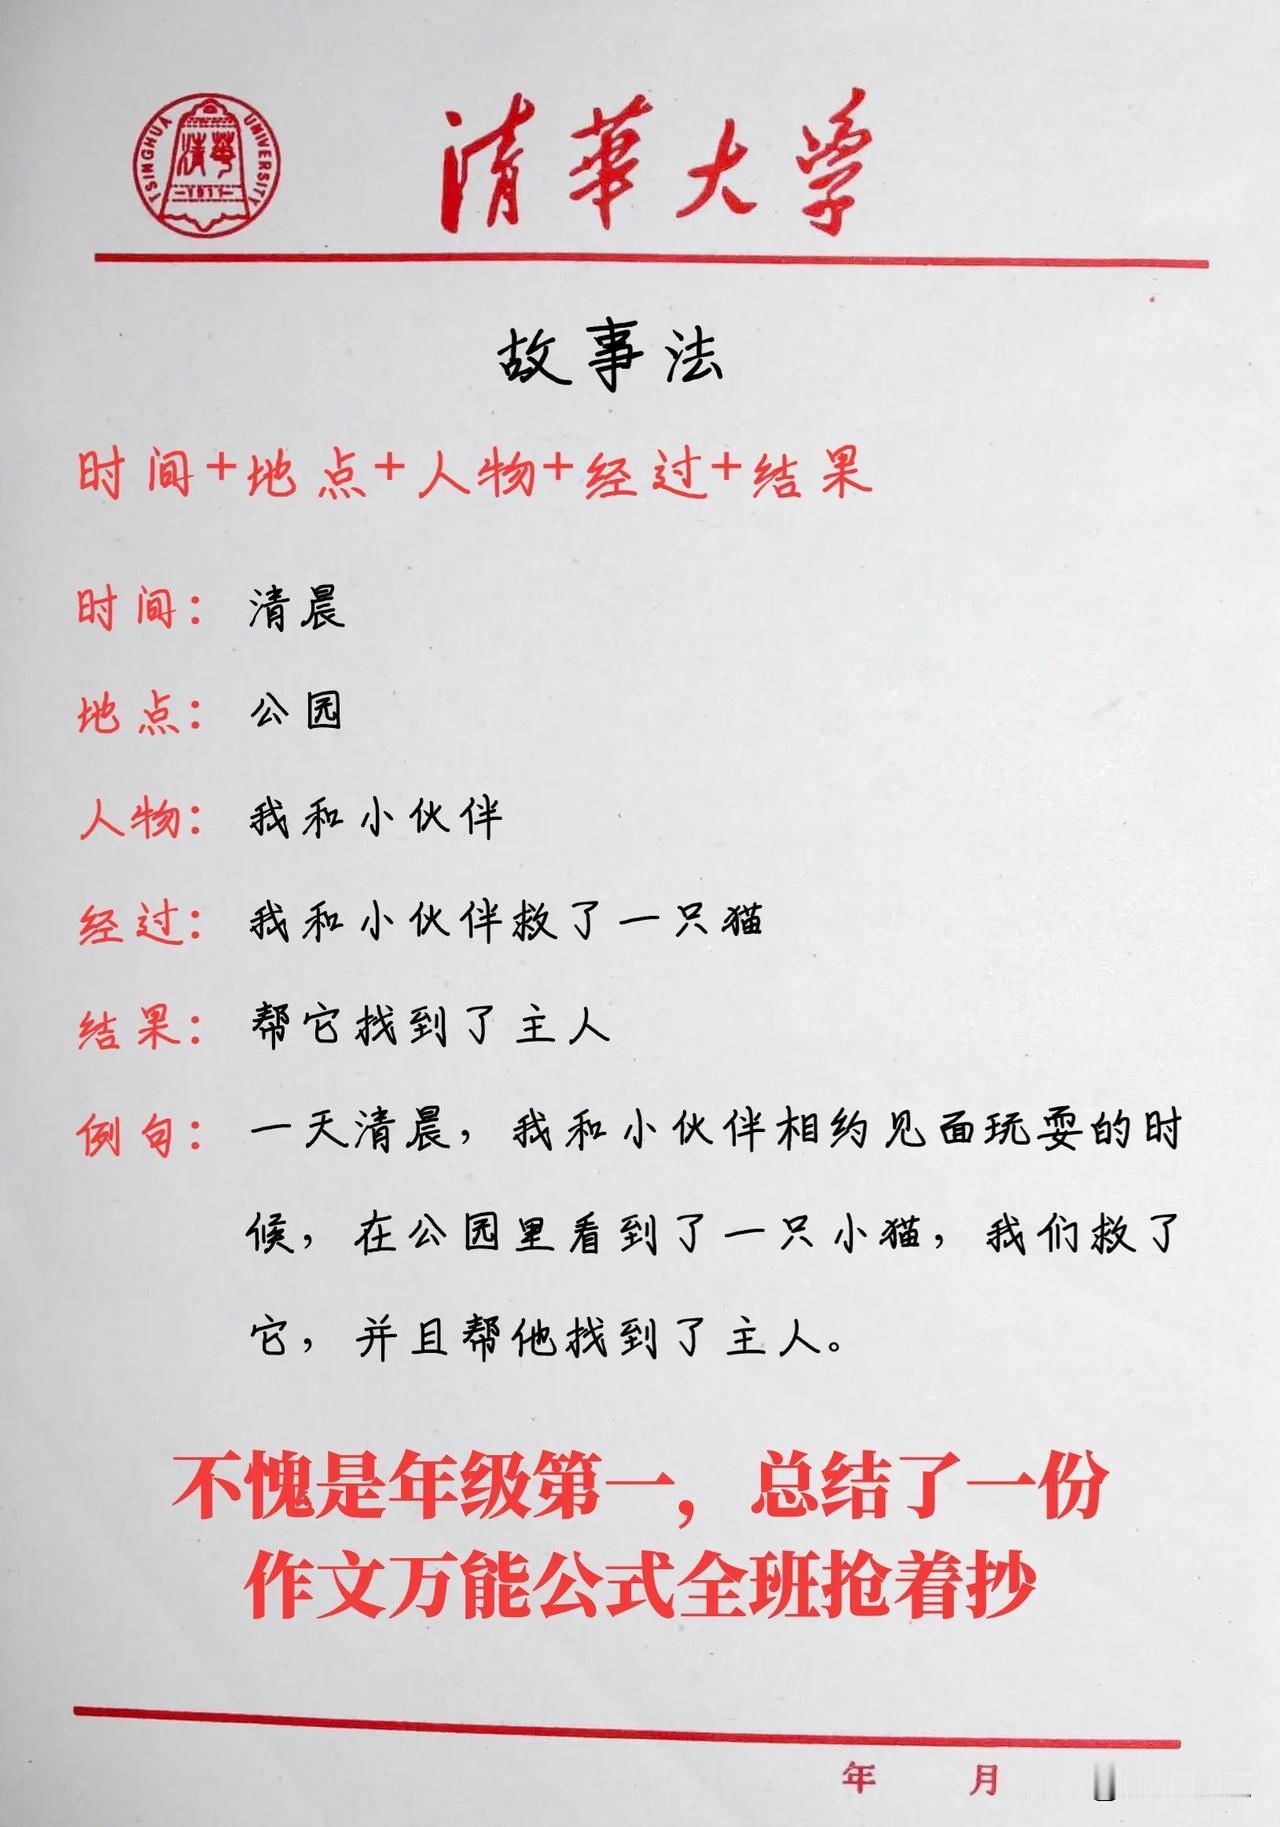 TSINGHUA UNIVERSITY
清華
-1911-
清華大学
故事法
时间+地点+人物+经过+结果
时间：清晨
地点：公园
人物：我和小伙伴
经过：我和小伙伴救了一只猫
结果：帮它找到了主人
例句：一天清晨，我和小伙伴相约见面玩耍的时
候，在公园里看到了一只小猫，我们救了
它，并且帮他找到了主人。
不愧是年级第一，总结了一份
作文万能公式全班抢着抄
年 月